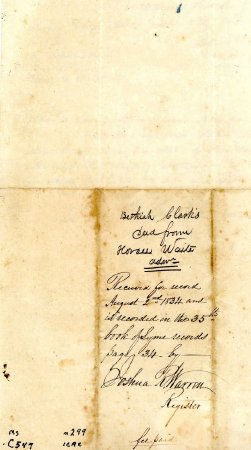 Clark's
Deed from
Horace Waite
adm:
Received for record
August 2nd 1834 and
is recorded in the 35th
book of Lyme records
page 34 - by -
Joshua R Warren
Register
fee paid
ms
C547